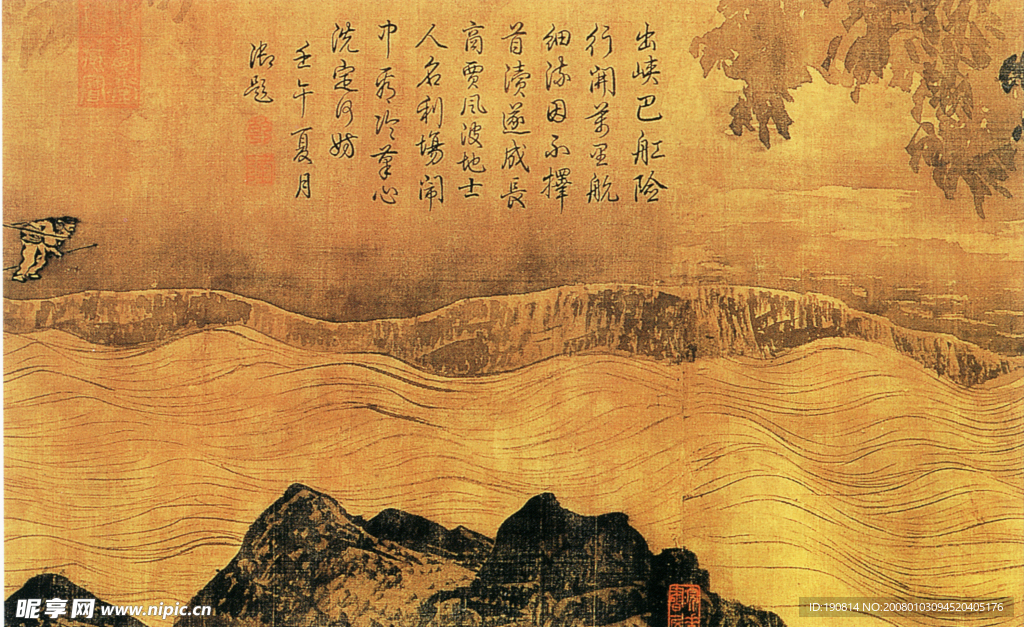 出峽巴舡險
行開萬里航
細流因不擇
首瀆遂成長
商賈風波地士
人名利場閙
中冷筆心
洗定何妨
壬午夏月
御題
昵享网 www.nipic.cn
ID:190814 NO:20080103094520405176